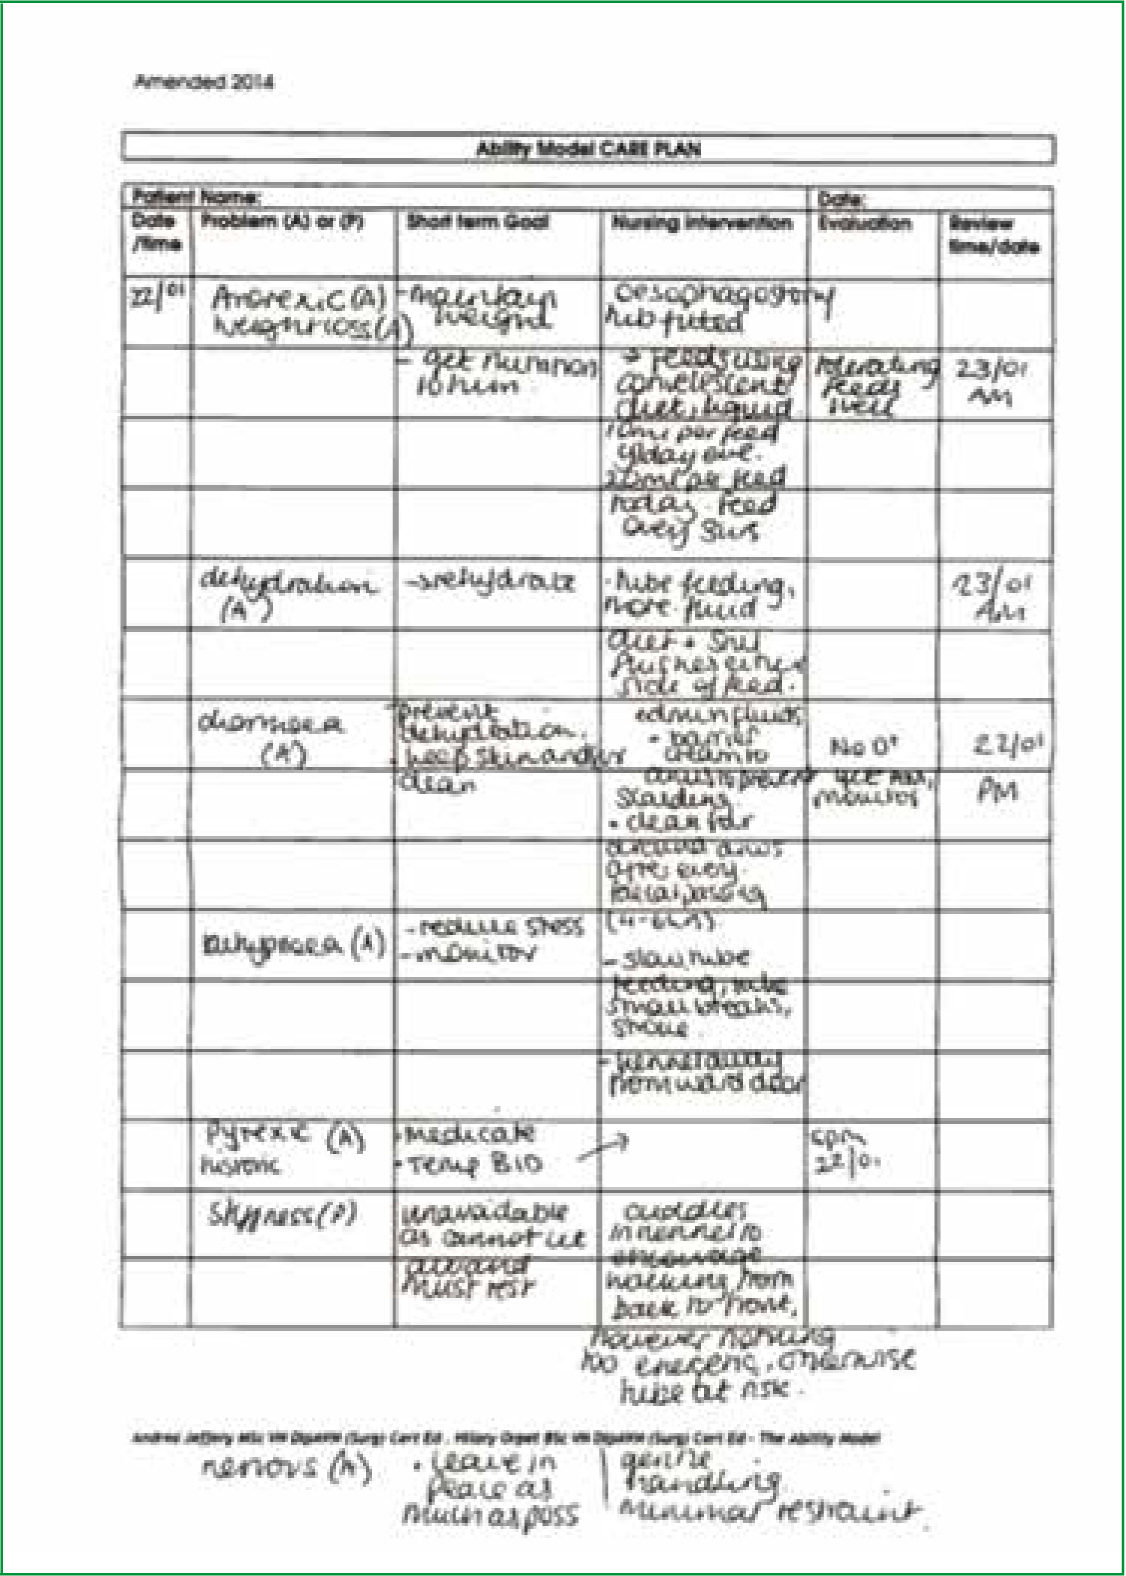 Amended 2014
Ability Model CARE PLAN
Patient Name: Date:
Date Problem (A) or (P) Short term Goal Nursing intervention Evaluation Review
/time time/date
22/01 Anorexic (A) - maintain oesophagostomy
weight loss (A) weight tub fitted
- get nutrition → feeds using tolerating 23/01
to him. convelescent feeds AM
diet, liquid well
10ml per feed
y/day eve.
per feed
today. feed
every 3hrs
dehydration → rehydrate · tube feeding, 23/01
(A) more fluid AM
diet + 5ml
flushes either
side of feed.
diarrhoea - prevent admin fluids
(A) dehydration. • barrier No D+ 22/01
• keep skin and cream to
clean anus to prevent yet AM, PM
scalding monitor
• clean fur
around anus
after every
faecal passing
- reduce stress (4-6hrs)
(A) - monitor - slow tube
feeding, take
small breaks,
stroke.
- kennel away
from ward door
Pyrexic (A) • Medicate 6pm
historic • Temp BID → 22/01
Stiffness (P) unavoidable cuddles
as cannot let in kennel to
out and encourage
must rest walking from
back to front,
however nothing
too energetic, otherwise
tube at risk.
Andrea Jeffery MSc VN DipAVN (Surg) Cert Ed . Hilary Orpet BSc VN DipAVN (Surg) Cert Ed - The Ability Model
nervous (A) • Leave in gentle
peace as handling
much as poss minimal restraint.